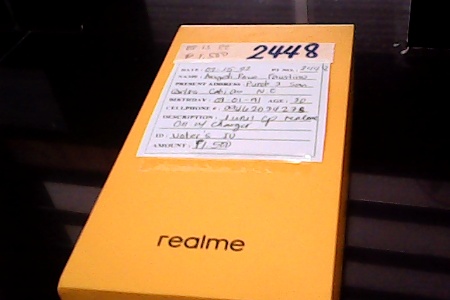 2448
DATE: 02-15-22 PT NO. 2448
NAME: Angeli Rose Faustino
PRESENT ADDRESS: Purok 3 San
Carlos N.E
BIRTHDAY: 09-01-91 AGE: 30
CELLPHONE #:
DESCRIPTION: 1 unit cp realme
C11 w/ Charger
ID: Voter's ID
AMOUNT: ₱1,500
realme